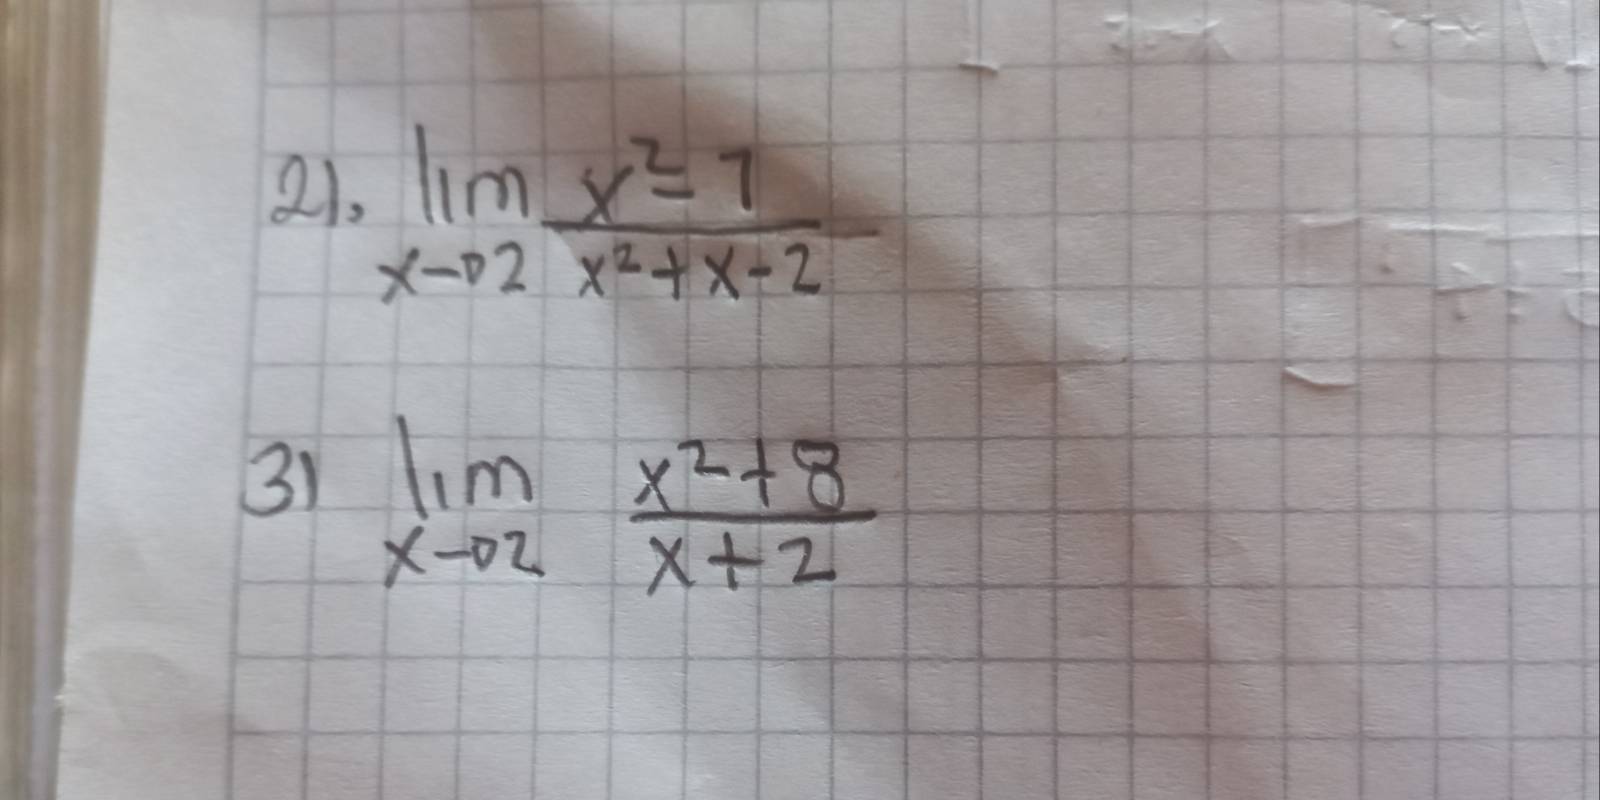 2). lim x² - 7
x→2 x² + x - 2
3) lim x² + 8
x→2 x + 2